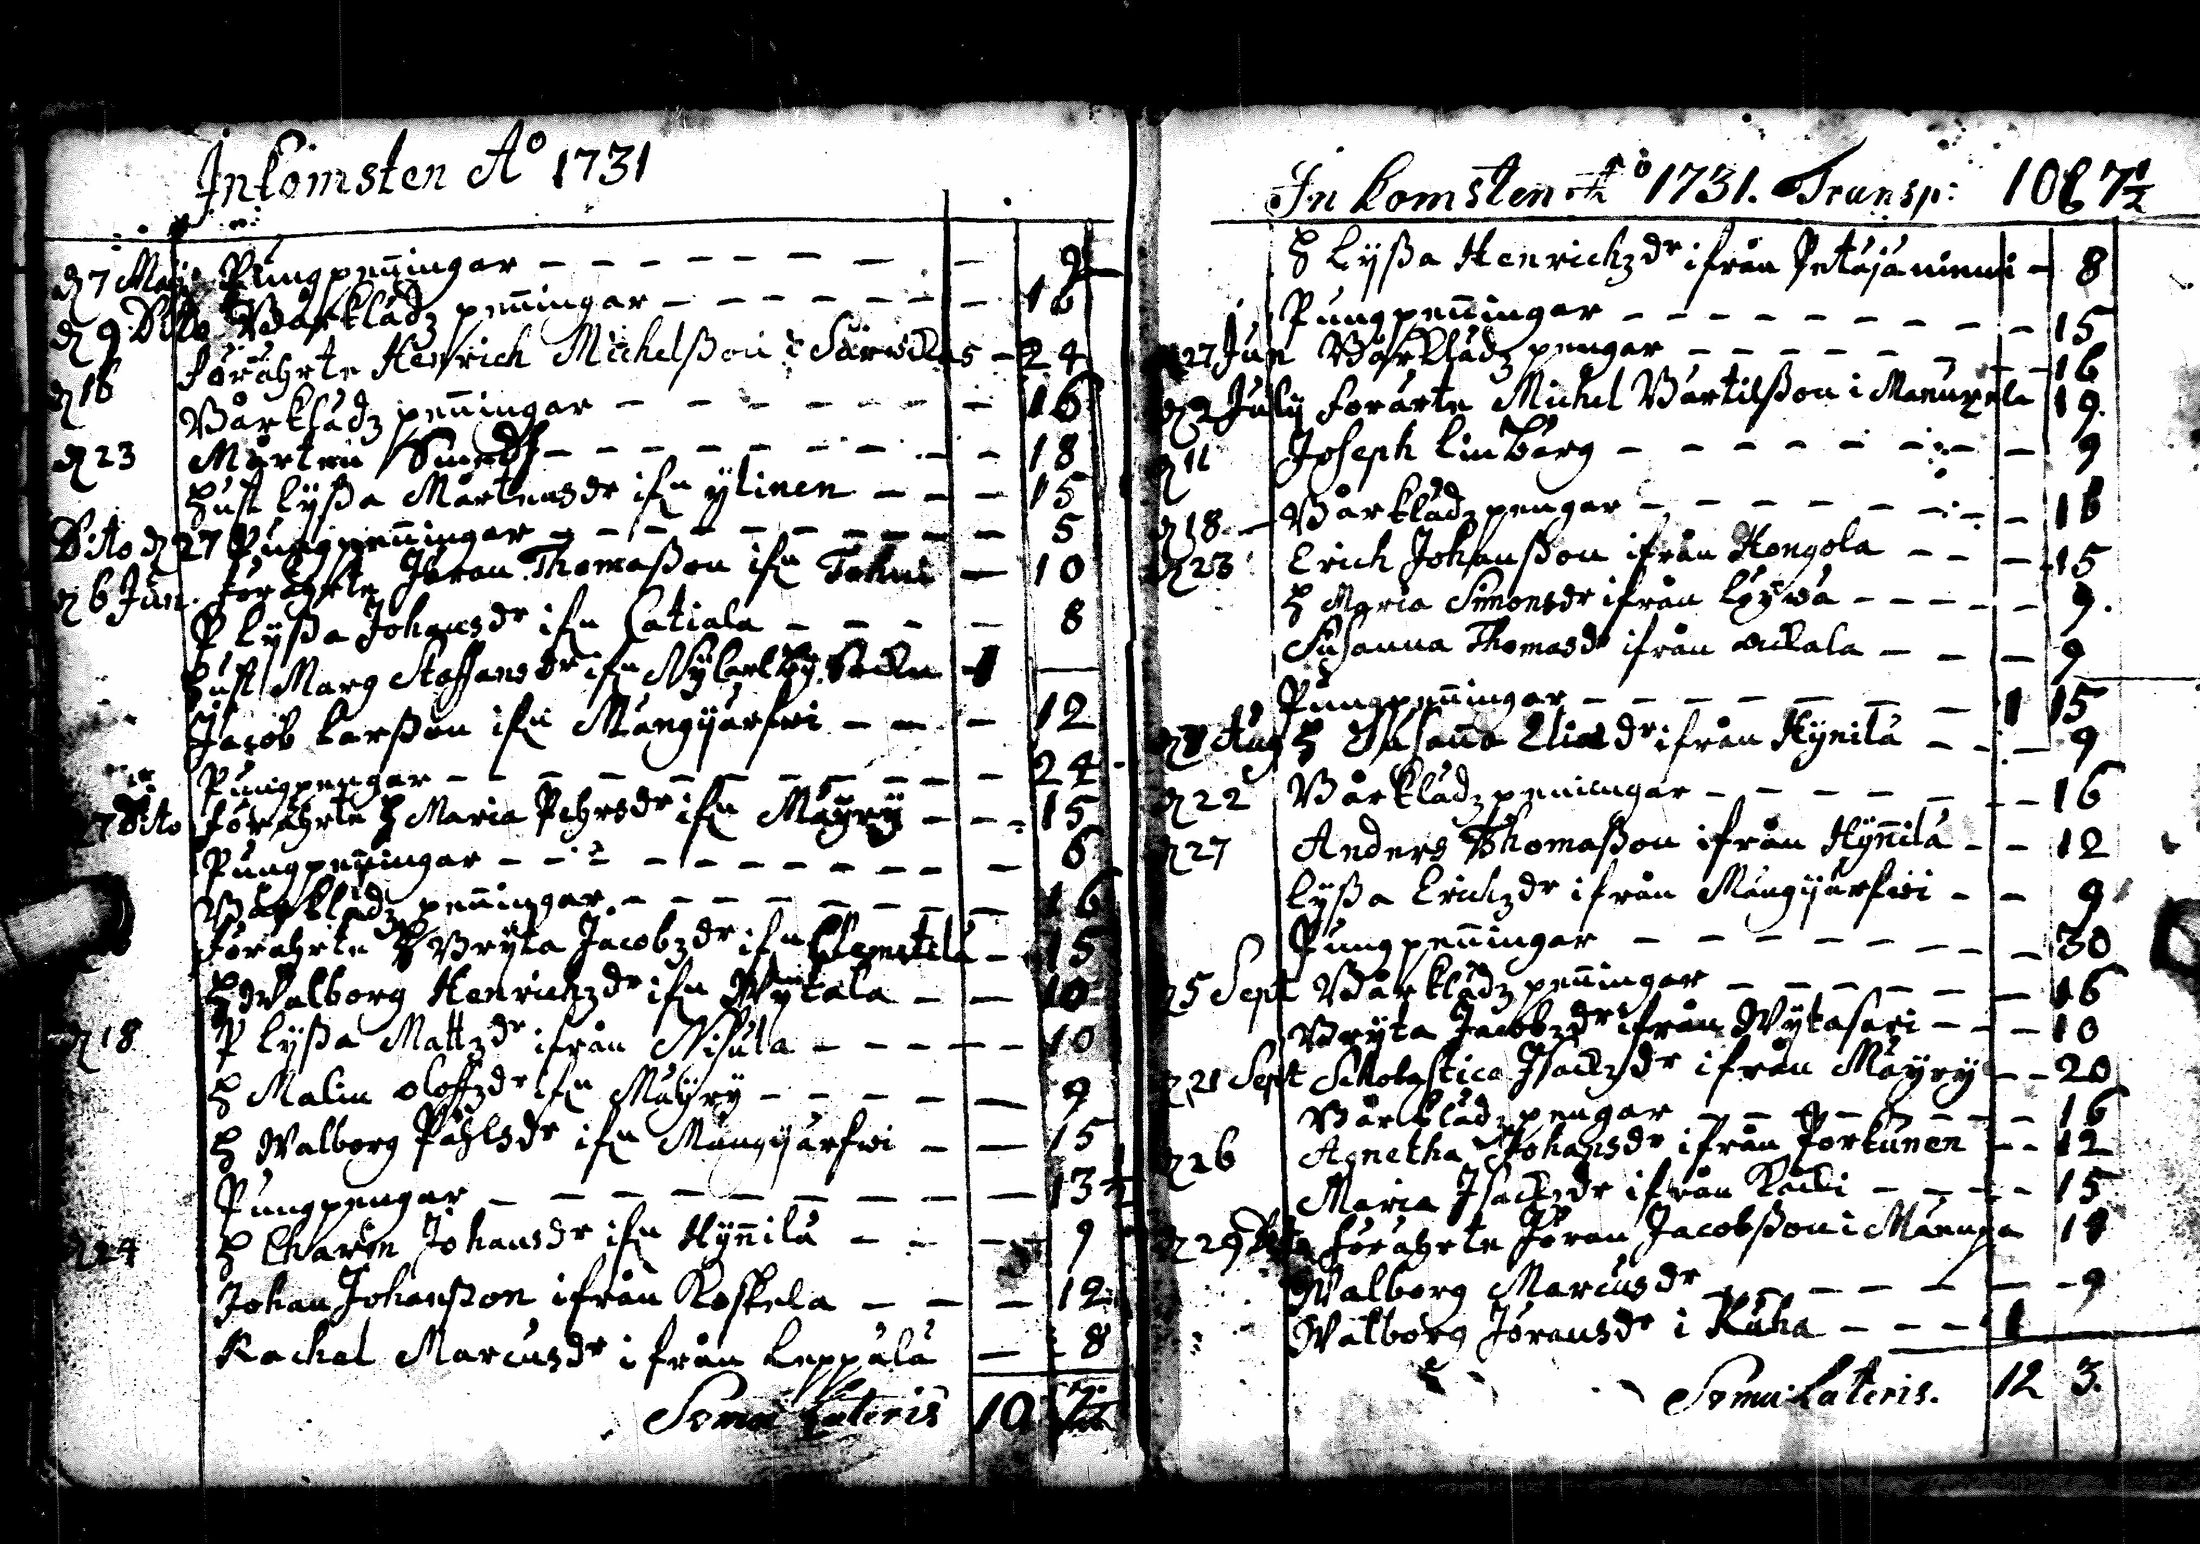 Inkomsten Aº 1731
d 7 Maij Pungpenningar — 9
d 9 Dito Wårklädz penningar — 16
Förährte Henrich Michelßon i — 24
d 16 Wårklädz penningar — 16
d 23 Mårten Smedh — 18
Hust Lyßa Mårtensdr ifn ylinen — 15
Dito d 27 Pungpenningar — 5
d 6 Jun. förährte Jöran Thomaßon ifn — 10
P Lyßa Johansdr ifn Catiala — 8
Hust Marg Staffansdr ifn — 1
Jacob Larßon ifn Mängijärfwi — 12
Pungpengar — 24
7 Dito Förährte H Maria Pehrsdr ifn Mäyry — 15
Pungpenningar — 6
Wårklädz penningar — 16
Förährte H Bryta Jacobzdr ifn — 15
H Walborg Henrichzdr ifn Wytala — 10
d 18 P Lyßa Mattzdr ifrån Nisula — 10
H Malin Oloffzdr ifn Mäyry — 9
H Walborg Påhlsdr ifn Mängijärfwi — 15
Pungpengar — 13 ½
d 24 H Charin Johansdr ifn Hynnilä — 9
Johan Johanßon ifrån Koskela — 12
Rachel Marcusdr ifrån Leppälä — 8
Soma Lateris 10 7½
Inkomsten Aº 1731. Transp: 10 7½
H Lyßa Henrichzdr ifrån Petäjäniemi — 8
Pungpenningar — 15
27 Jun Wårklädz pengar — 16
d 2 July förärte Michel Bärtilßon i — 19.
d 11 Joseph Linberg — 9
d 18 Wårklädzpengar — 16
d 23 Erich Johanßon ifrån Hongola — 15
H Maria Simonsdr ifrån — 9.
Susanna Thomasdr ifrån — 9
Pungpenningar — 1 15
d 8 Aug H Susanna Eliædr ifrån Hynilä — 9
d 22 Wårklädzpenningar — 16
d 27 Anders Thomaßon ifrån Hynnilä — 12
Lyßa Erichzdr ifrån Mängijärfwi — 9
Pungpenningar — 30
d 5 Sept Wårklädz penningar — 16
Bryta Jacobzdr ifrån Wytasari — 10
d 21 Sept Scholastica Isachzdr ifrån Mäyry — 20
Wårklädz pengar — 16
d 26 Agnetha Johansdr ifrån Porkunen — 12
Maria Isachzdr ifrån — 15
d 29 förährte Jöran Jacobßon i 18
Walborg Marcusdr — 9
Walborg Jöransdr i Kuha — 1
Soma: Lateris. 12 3.